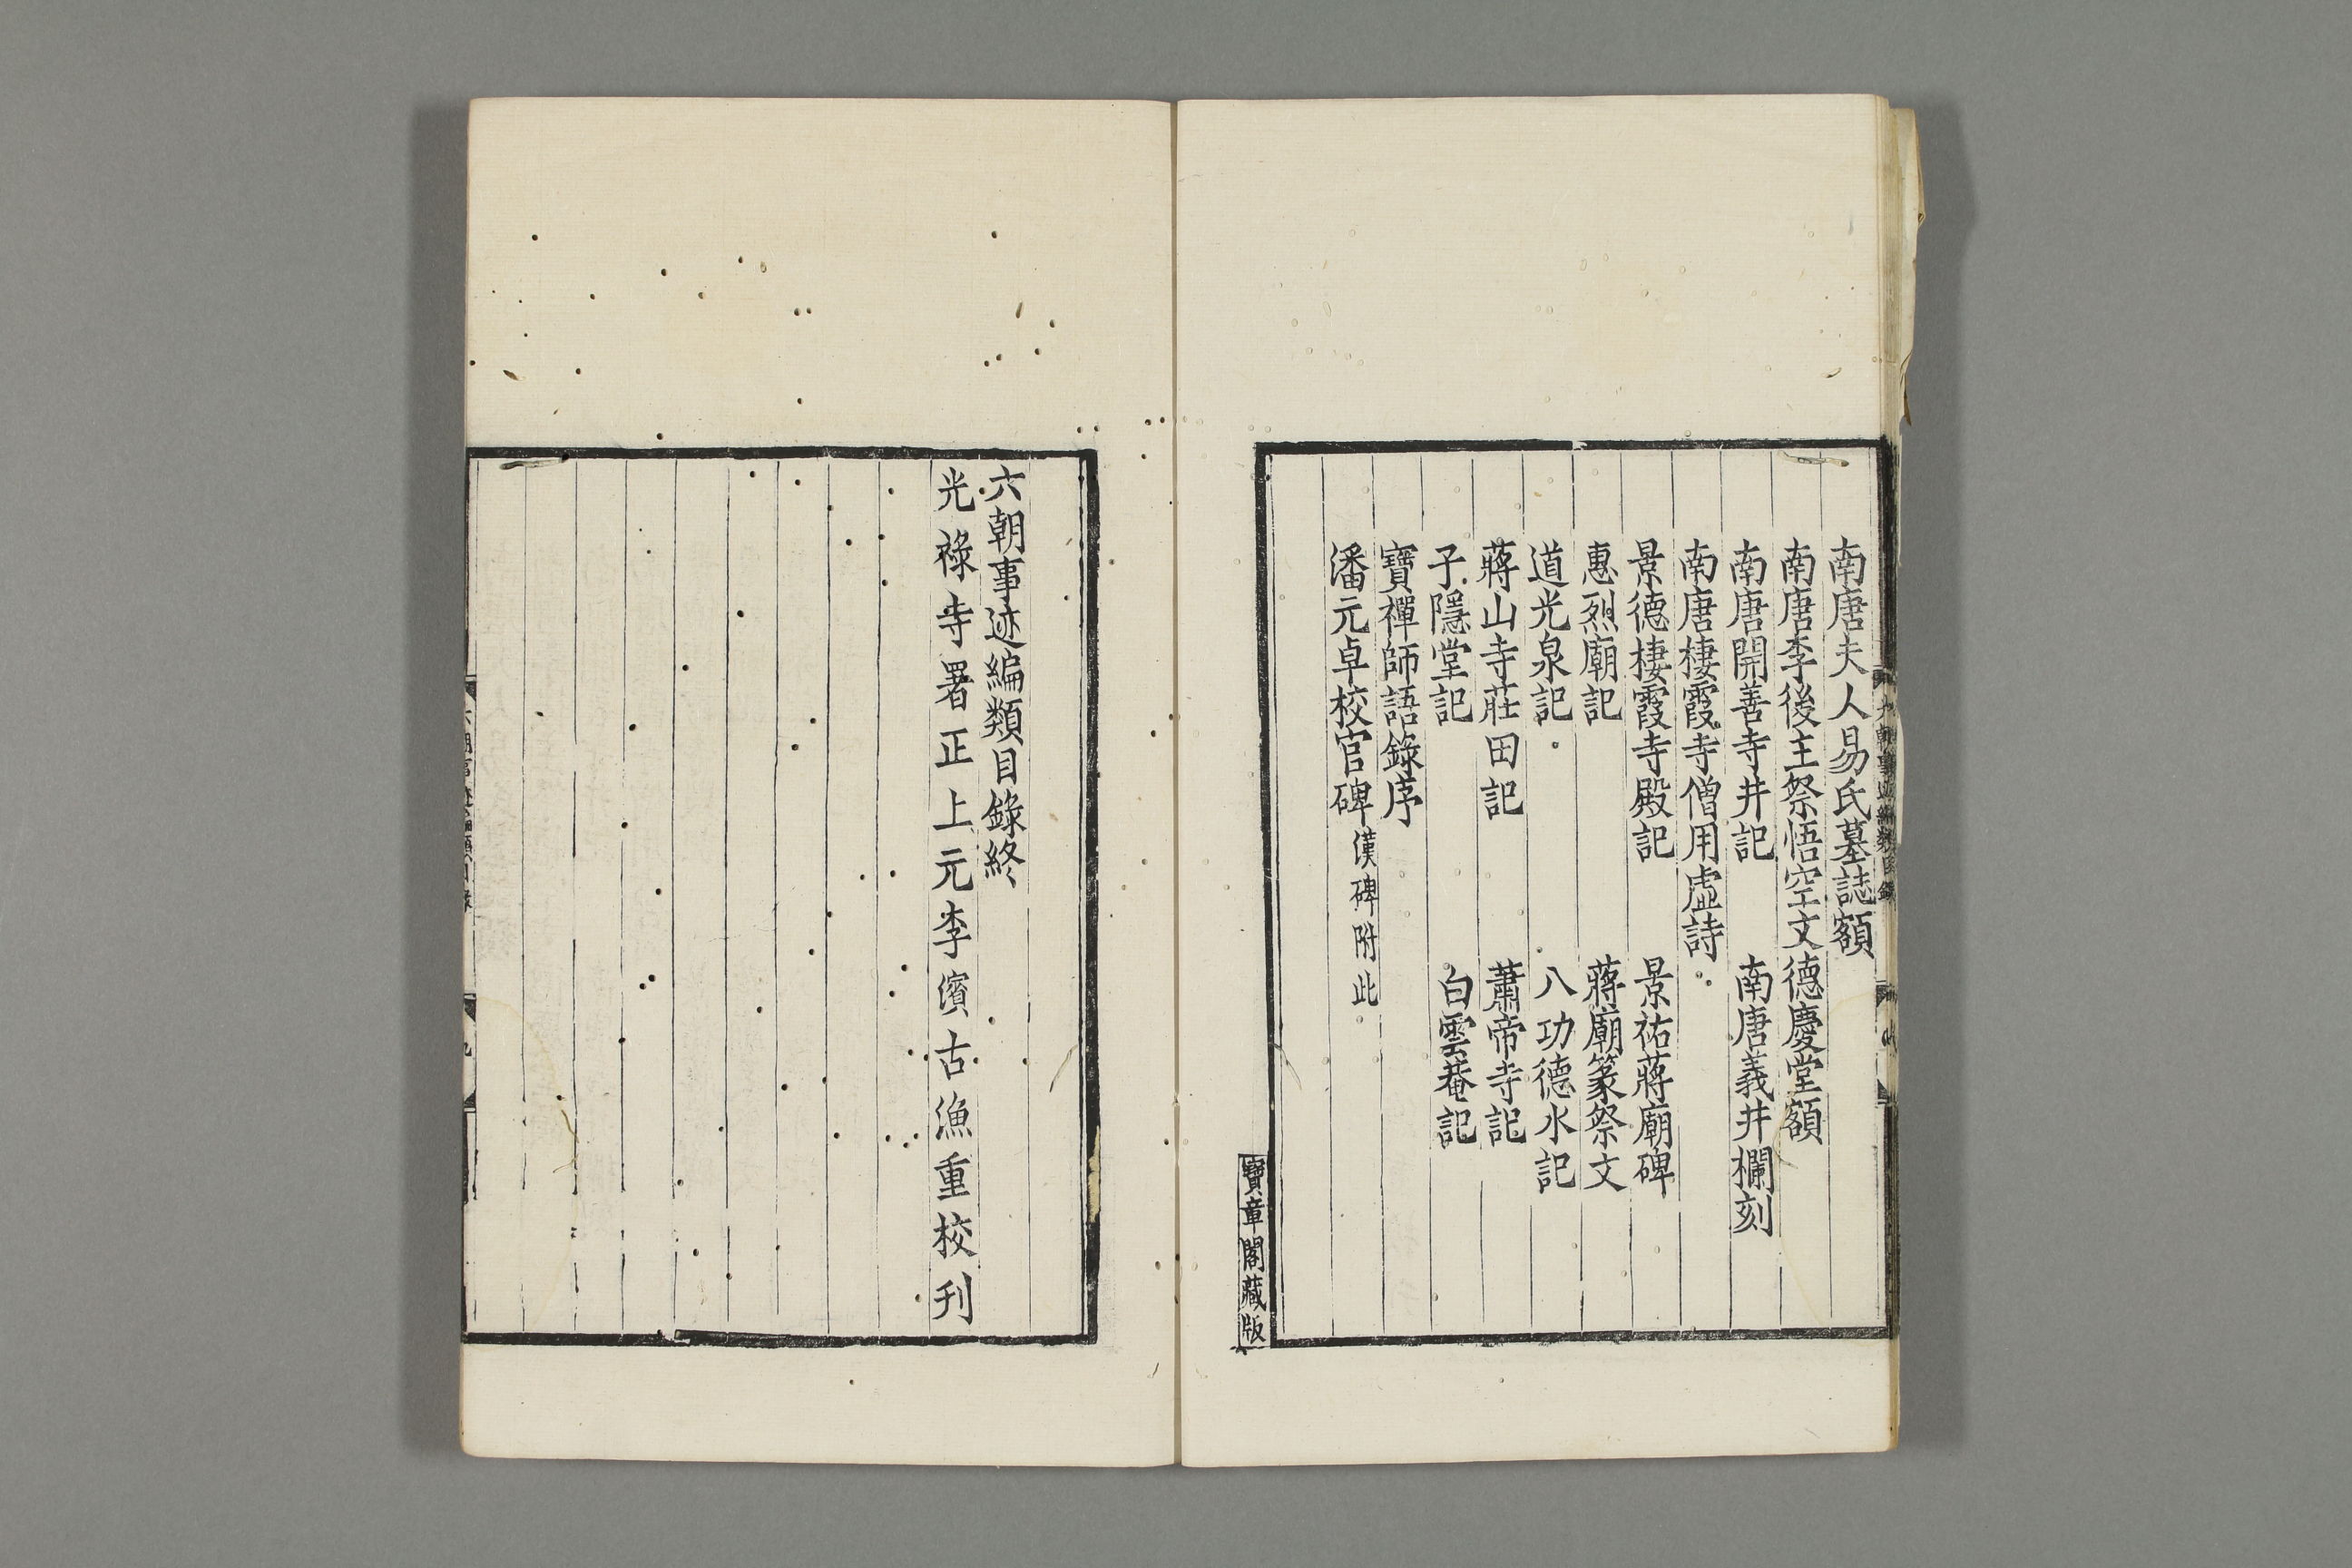 南唐夫人易氏墓誌額
南唐李後主祭悟空文德慶堂額
南唐開善寺井記　南唐義井欄刻
南唐棲霞寺僧用虛詩
景德棲霞寺殿記　景祐蔣廟碑
惠烈廟記　蔣廟篆祭文
道光泉記　八功德水記
蔣山寺莊田記　蕭帝寺記
子隱堂記　白雲菴記
寶禪師語錄序
潘元卓校官碑漢碑附此
寶章閣藏版
六朝事迹編類目錄終
光祿寺署正上元李濱古漁重校刊